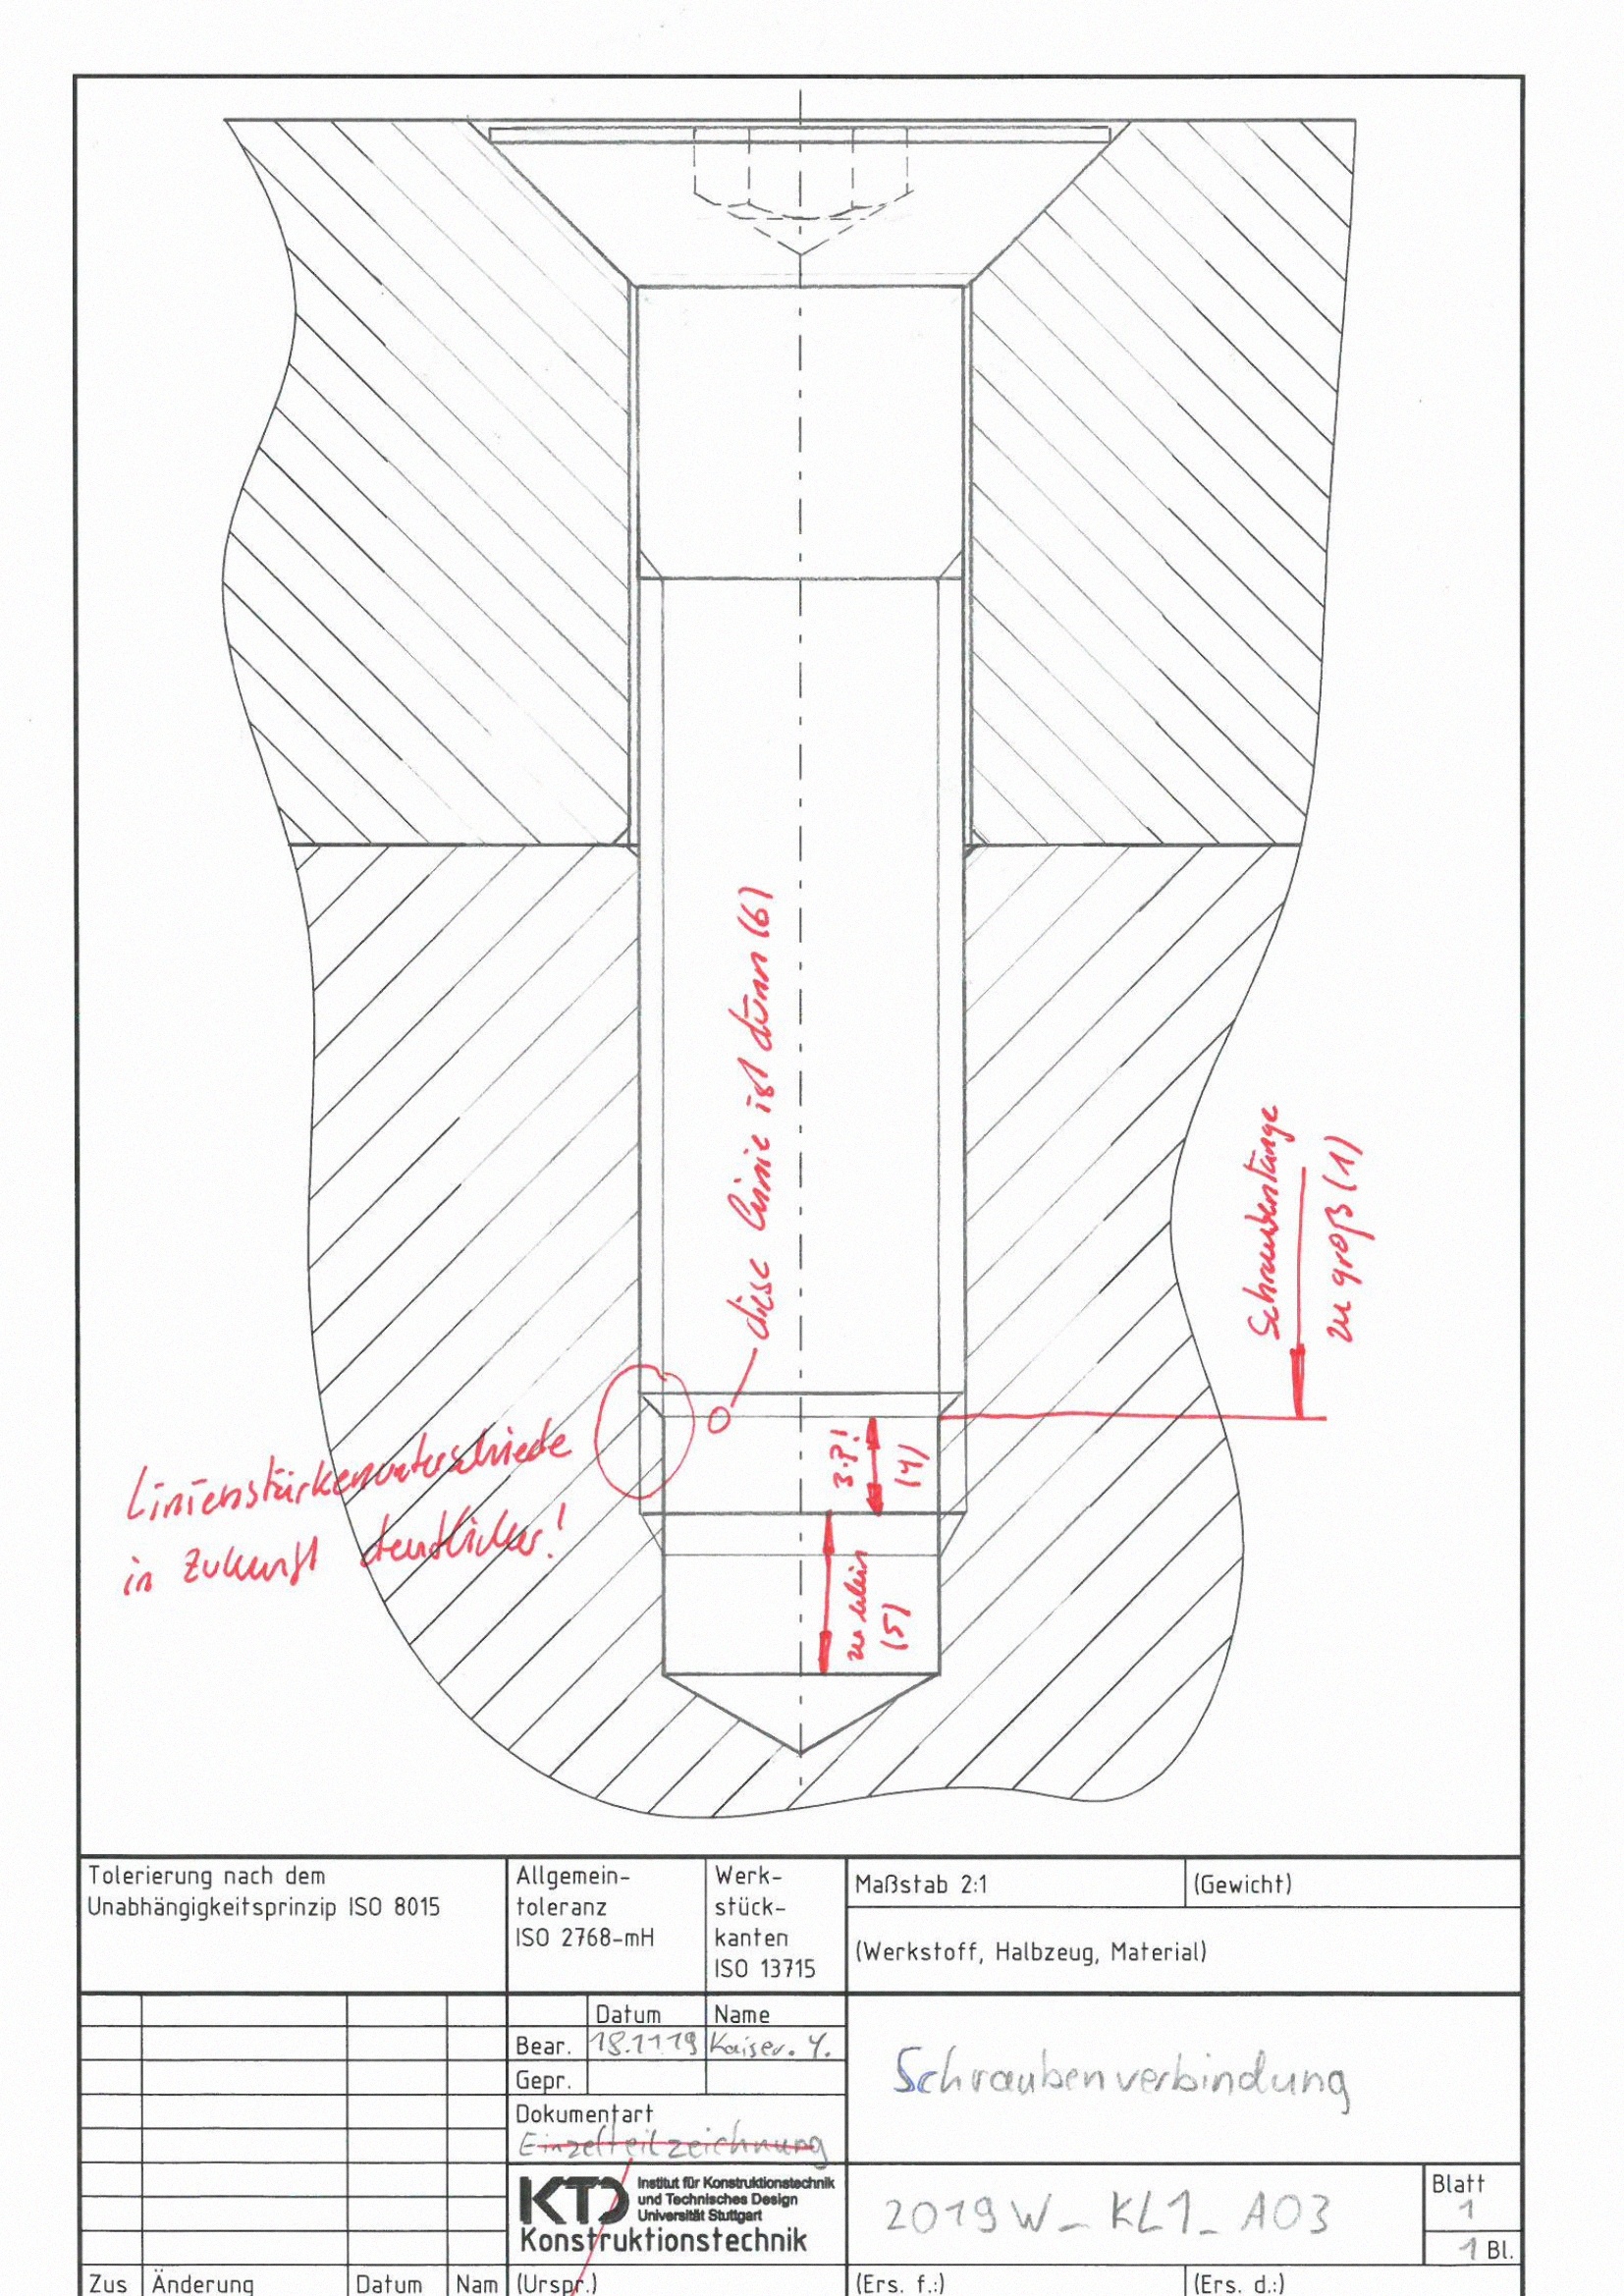 diese Linie ist dünn (6)
Schraubenlänge
zu groß (1)
Linienstärkenunterschiede
in Zukunft deutlicher!
3·P!
(4)
zu klein
(5)
Tolerierung nach dem
Unabhängigkeitsprinzip ISO 8015
Allgemein-
toleranz
ISO 2768-mH
Werk-
stück-
kanten
ISO 13715
Maßstab 2:1
(Gewicht)
(Werkstoff, Halbzeug, Material)
Datum Name
Bear. 18.11.19 Kaiser. Y.
Gepr.
Dokumentart
Einzelteilzeichnung
Schraubenverbindung
KTD
Institut für Konstruktionstechnik
und Technisches Design
Universität Stuttgart
Konstruktionstechnik
2019W_KL1_A03
Blatt
1
1 Bl.
Zus Änderung Datum Nam (Urspr.) (Ers. f.:) (Ers. d.:)